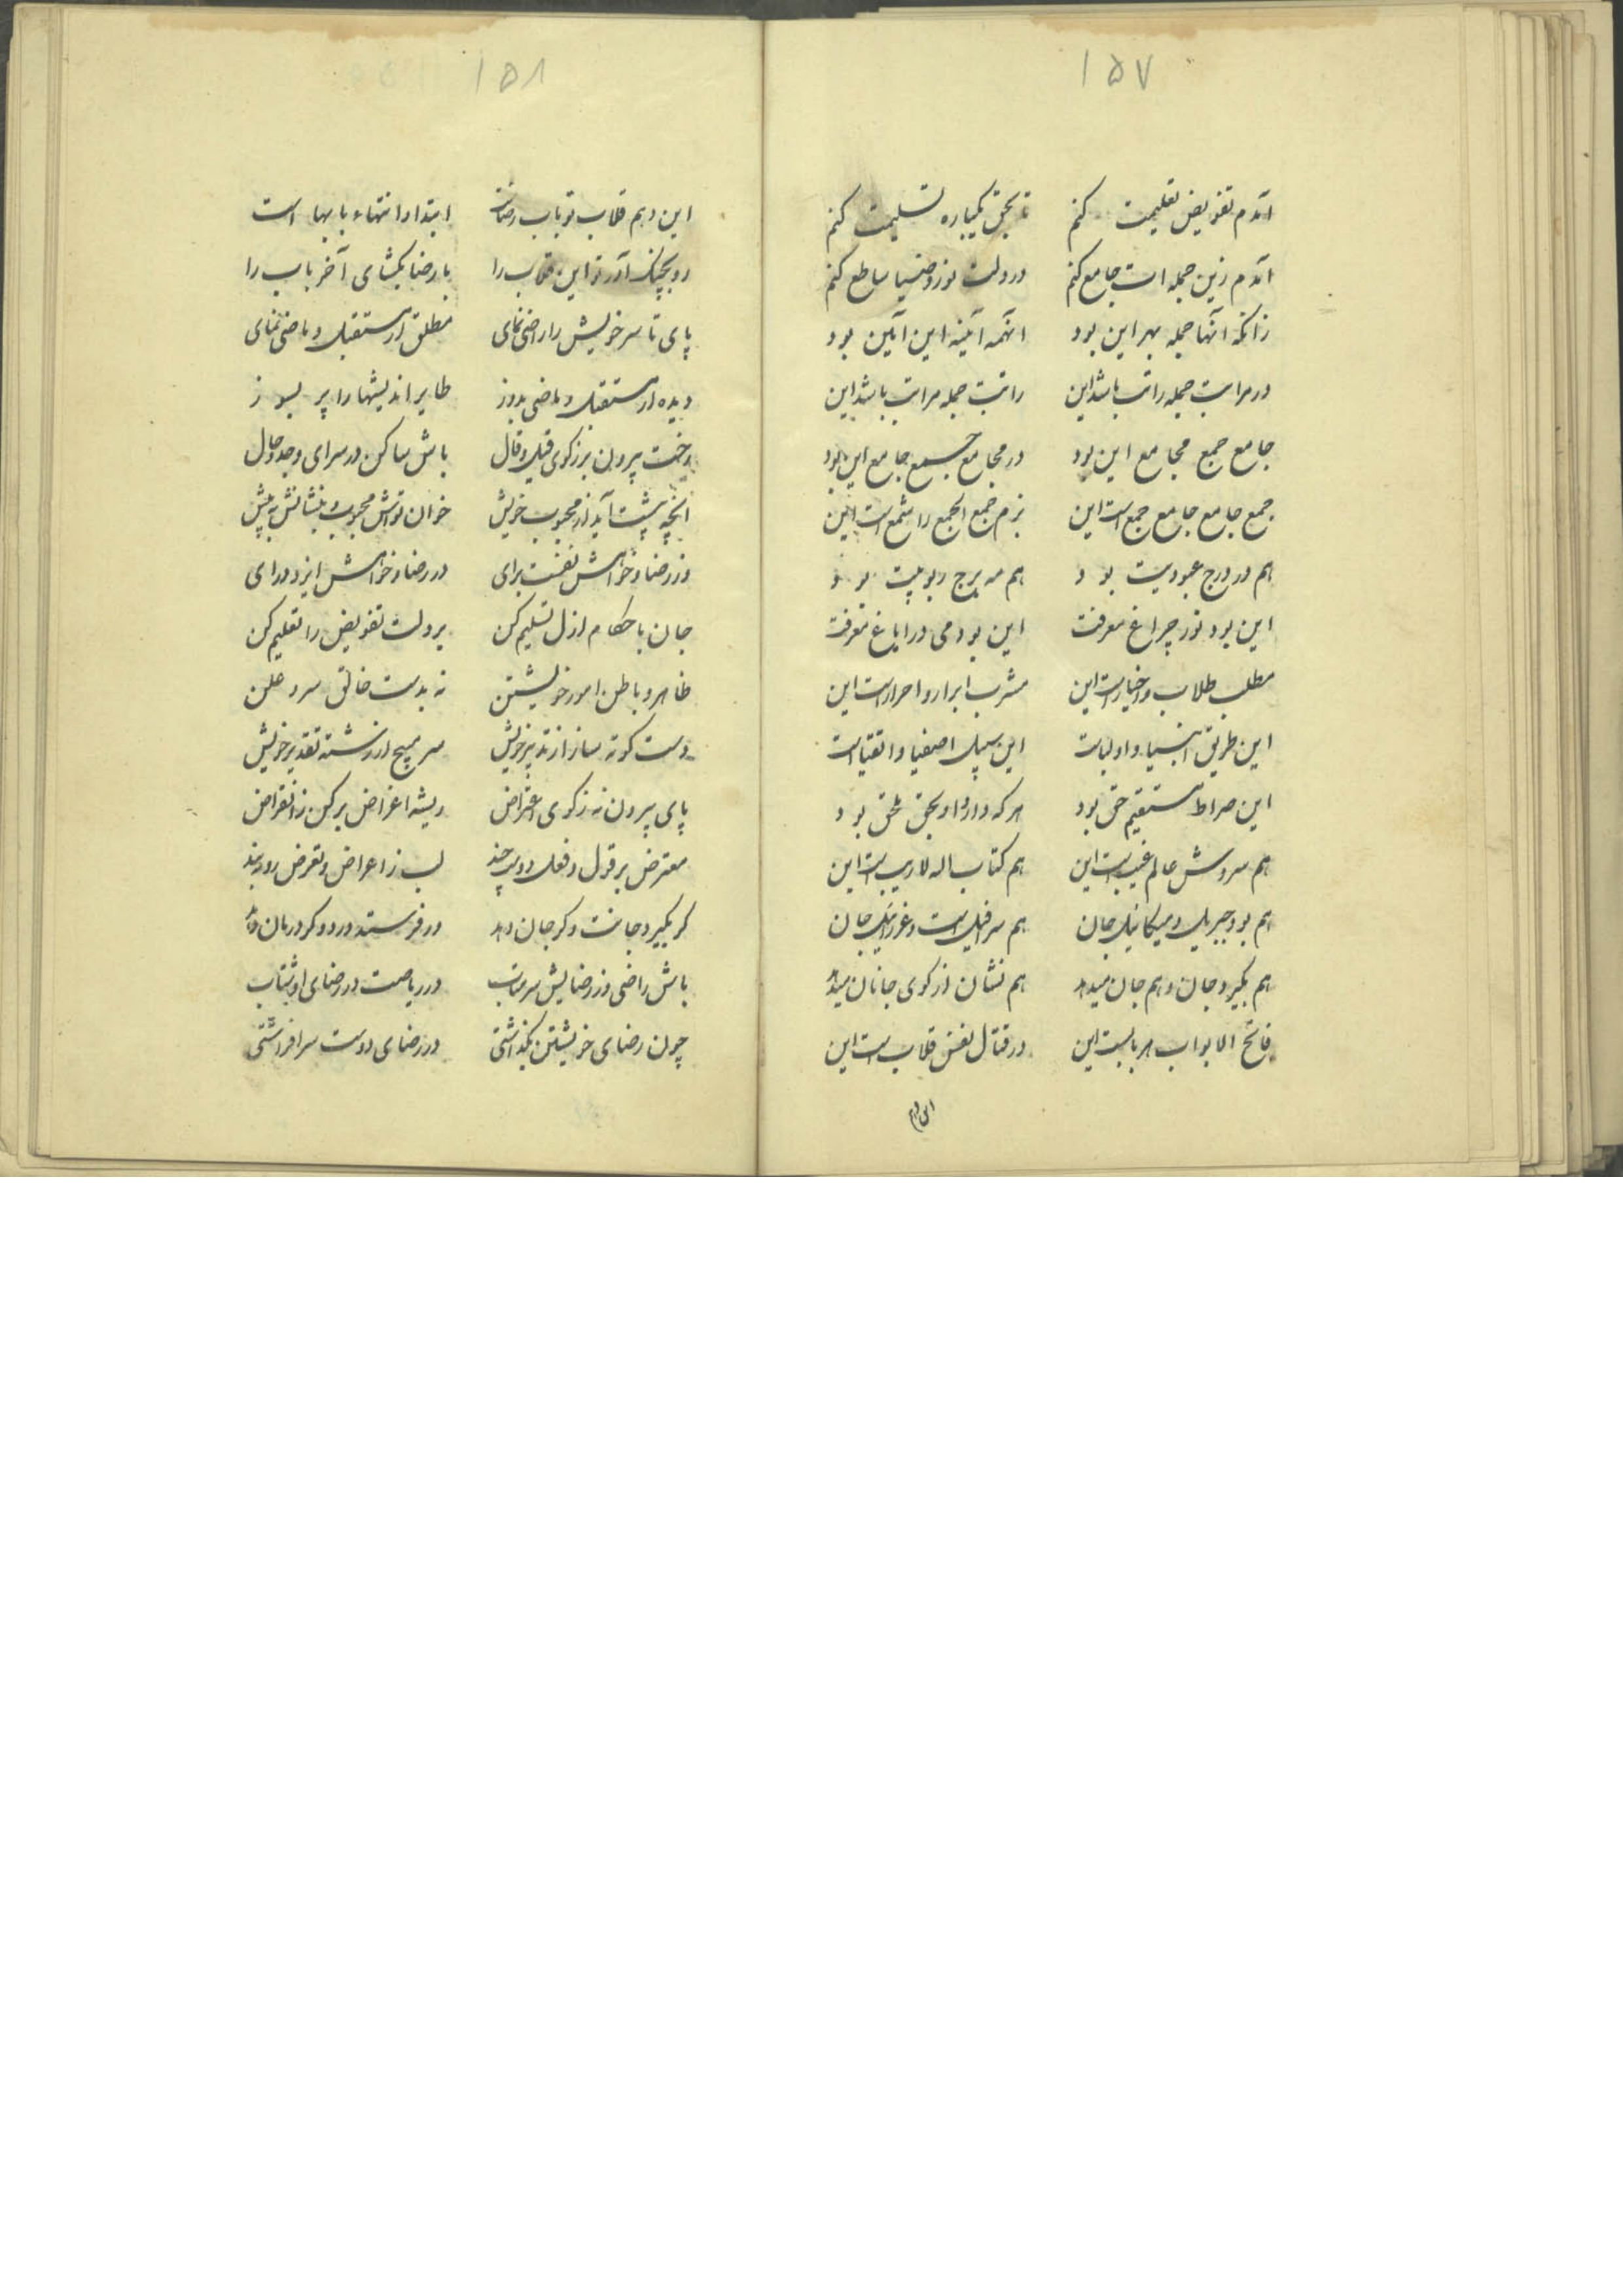 ۱۵۷
آندم تفویض تعلیمت کنم تا بحق یکباره تسلیمت کنم
آندم زین جمله است جامع کنم در دلت نور و ضیا ساطع کنم
زانکه آنها جمله بهر این بود آنهمه آئینه این آیین بود
در مراتب جمله راتب باشد این راتبت جمله مراتب باشد این
جامع جمع مجامع این بود در مجامع جمع جامع این بود
جمع جامع جامع جمع است این بزم جمع الجمع را شمع است این
هم در درج عبودیت بود هم مه برج ربوبیت بود
این بود نور چراغ معرفت این بود می در ایاغ معرفت
مطلب طلاب و اخیار است این مشرب ابرار و احرار است این
این طریق انبیا و اولیاست این سبیل اصفیا و اتقیاست
این صراط مستقیم حق بود هر که دارد او بحق ملحق بود
هم سروش عالم غیب است این هم کتاب اله لاریب است این
هم بود جبریل و میکائیل جان هم سرافیل است و عزرائیل جان
هم بگیرد جان و هم جان میدهد هم نشان از کوی جانان میدهد
فاتح الابواب هر بابست این در قتال نفس قلاب است این
این دهم
۱۵۸
این دهم قلاب تو باب رضاست ابتدا و انتهاء بابها است
رو بچنگ آور تو این قلاب را با رضا بگشای آخر باب را
پای تا سر خویش را راضی نمای مطلق از مستقبل و ماضی نمای
دیده از مستقبل و ماضی بدوز طایر اندیشها را پر بسوز
رخت بیرون بر ز کوی قیل و قال باش ساکن در سرای وجد و حال
آنچه پیشت آید از محبوب خویش خوان تواش محبوب و بنشانش به پیش
وز رضا و خواهش نفست برای در رضا و خواهش ایزد درای
جان باحکام ازل تسلیم کن بر دلت تفویض را تعلیم کن
ظاهر و باطن امور خویشتن نه بدست خالق سر و علن
دست کوته ساز از تدبیر خویش سر مپیچ از رشته تقدیر خویش
پای بیرون نه ز کوی اعتراض ریشه اغراض بر کن ز انقراض
معترض بر قول و فعل دوست چند لب ز اعراض و تعرض رو ببند
گر بگیرد جانت و گر جان دهد ور فرستد درد و گر درمان دهد
باش راضی وز رضایش سر متاب در ریاضت در رضای او شتاب
چون رضای خویشتن بگذاشتی در رضای دوست سر افراشتی